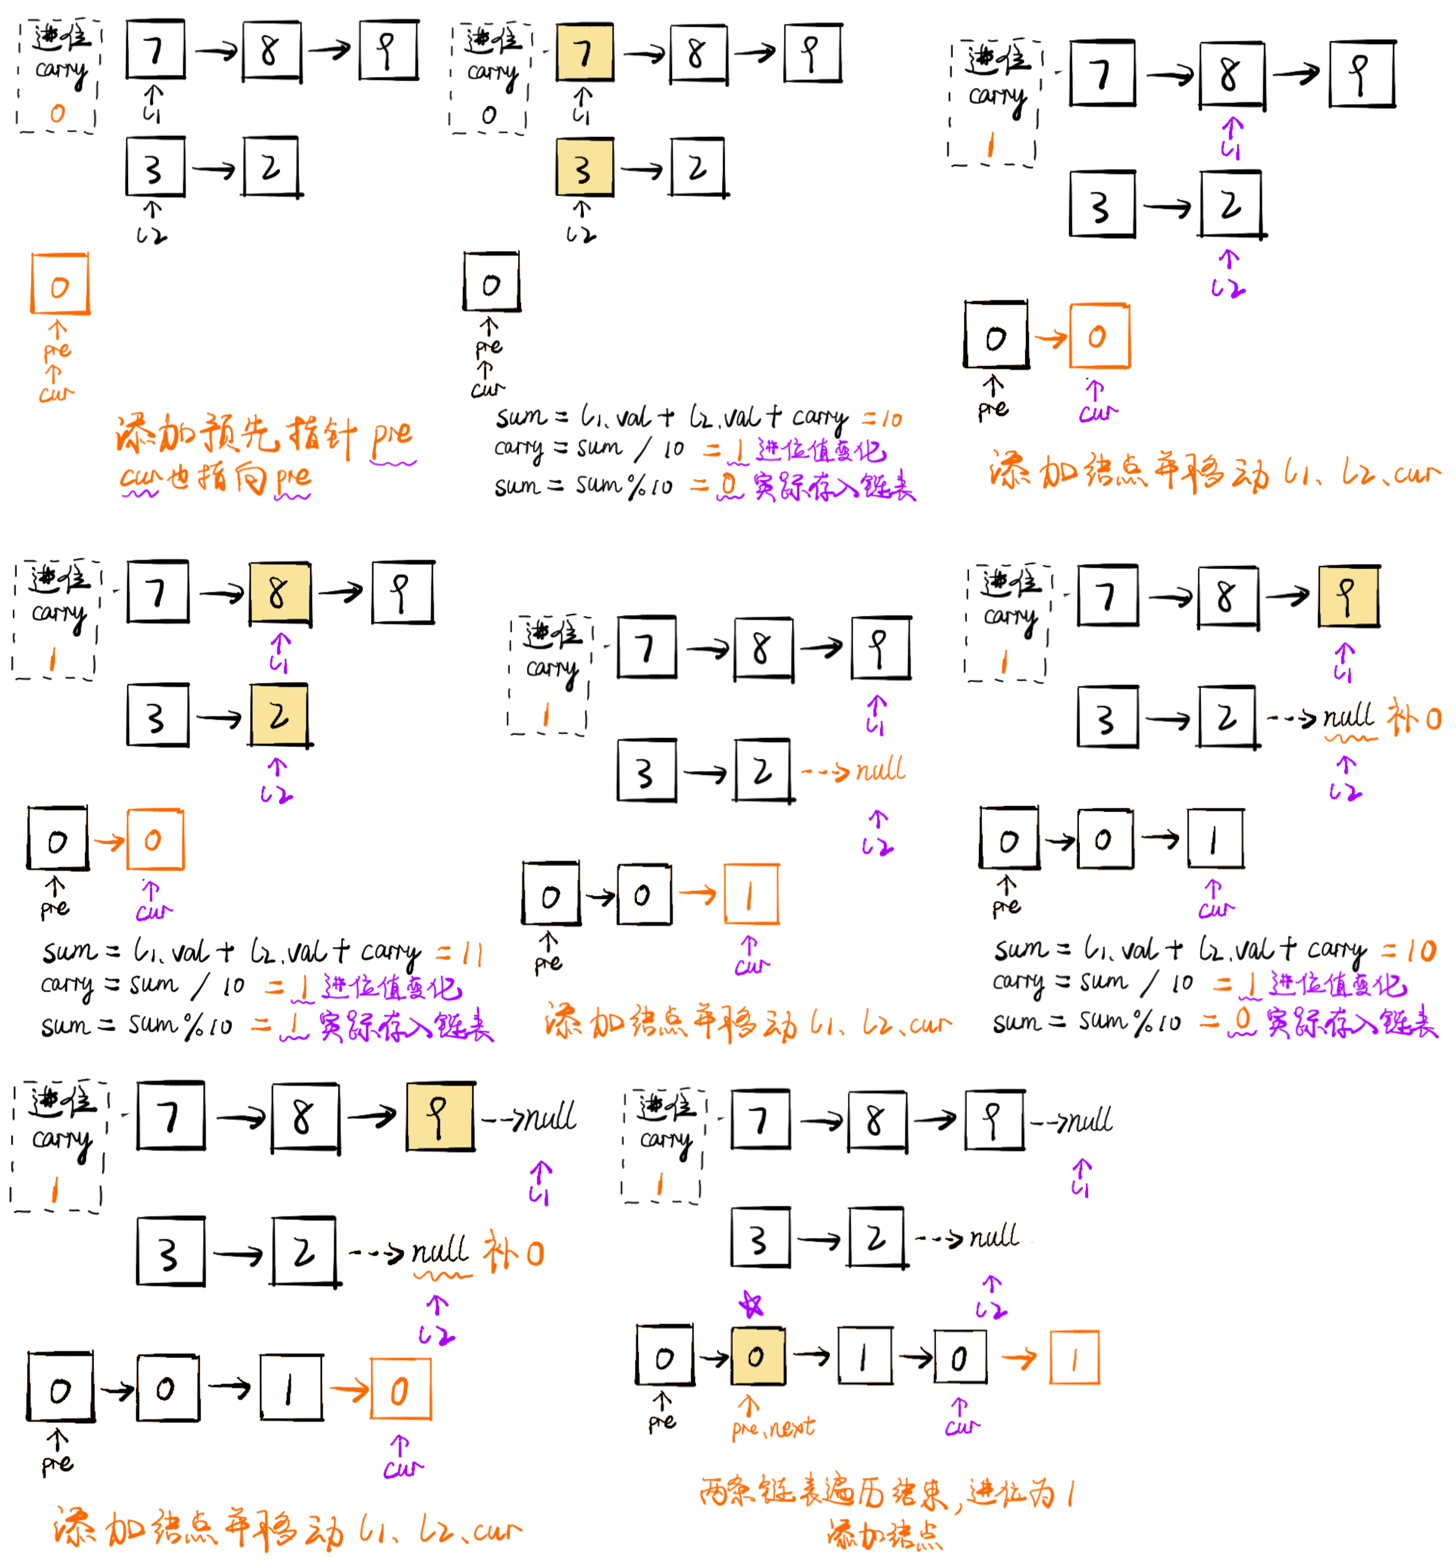 进位
carry
0
7 → 8 → 9
↑
L1
3 → 2
↑
L2
0
↑
pre
↑
cur
添加预先指针pre
cur也指向pre
进位
carry
0
7 → 8 → 9
↑
L1
3 → 2
↑
L2
0
↑
pre
↑
cur
sum = L1.val + L2.val + carry = 10
carry = sum / 10 = 1 进位值变化
sum = sum%10 = 0 实际存入链表
进位
carry
1
7 → 8 → 9
↑
L1
3 → 2
↑
L2
0 → 0
↑ ↑
pre cur
添加结点并移动L1、L2、cur
进位
carry
1
7 → 8 → 9
↑
L1
3 → 2
↑
L2
0 → 0
↑ ↑
pre cur
sum = L1.val + L2.val + carry = 11
carry = sum / 10 = 1 进位值变化
sum = sum%10 = 1 实际存入链表
进位
carry
1
7 → 8 → 9
↑
L1
3 → 2 --→ null
↑
L2
0 → 0 → 1
↑ ↑
pre cur
添加结点并移动L1、L2、cur
进位
carry
1
7 → 8 → 9
↑
L1
3 → 2 --→ null 补0
↑
L2
0 → 0 → 1
↑ ↑
pre cur
sum = L1.val + L2.val + carry = 10
carry = sum / 10 = 1 进位值变化
sum = sum%10 = 0 实际存入链表
进位
carry
1
7 → 8 → 9 --→ null
↑
L1
3 → 2 --→ null 补0
↑
L2
0 → 0 → 1 → 0
↑ ↑
pre cur
添加结点并移动L1、L2、cur
进位
carry
1
7 → 8 → 9 --→ null
↑
L1
3 → 2 --→ null
↑
L2
☆
0 → 0 → 1 → 0 → 1
↑ ↑ ↑
pre pre.next cur
两条链表遍历结束,进位为1
添加结点